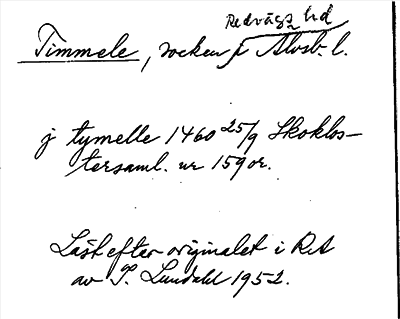 Redvägs hd
Timmele, socken i Älvsb. l.
j tymelle 1460 25/9 Skoklos-
tersaml. nr 159 or.
Läst efter originalet i RA
av P. Lundahl 1952.